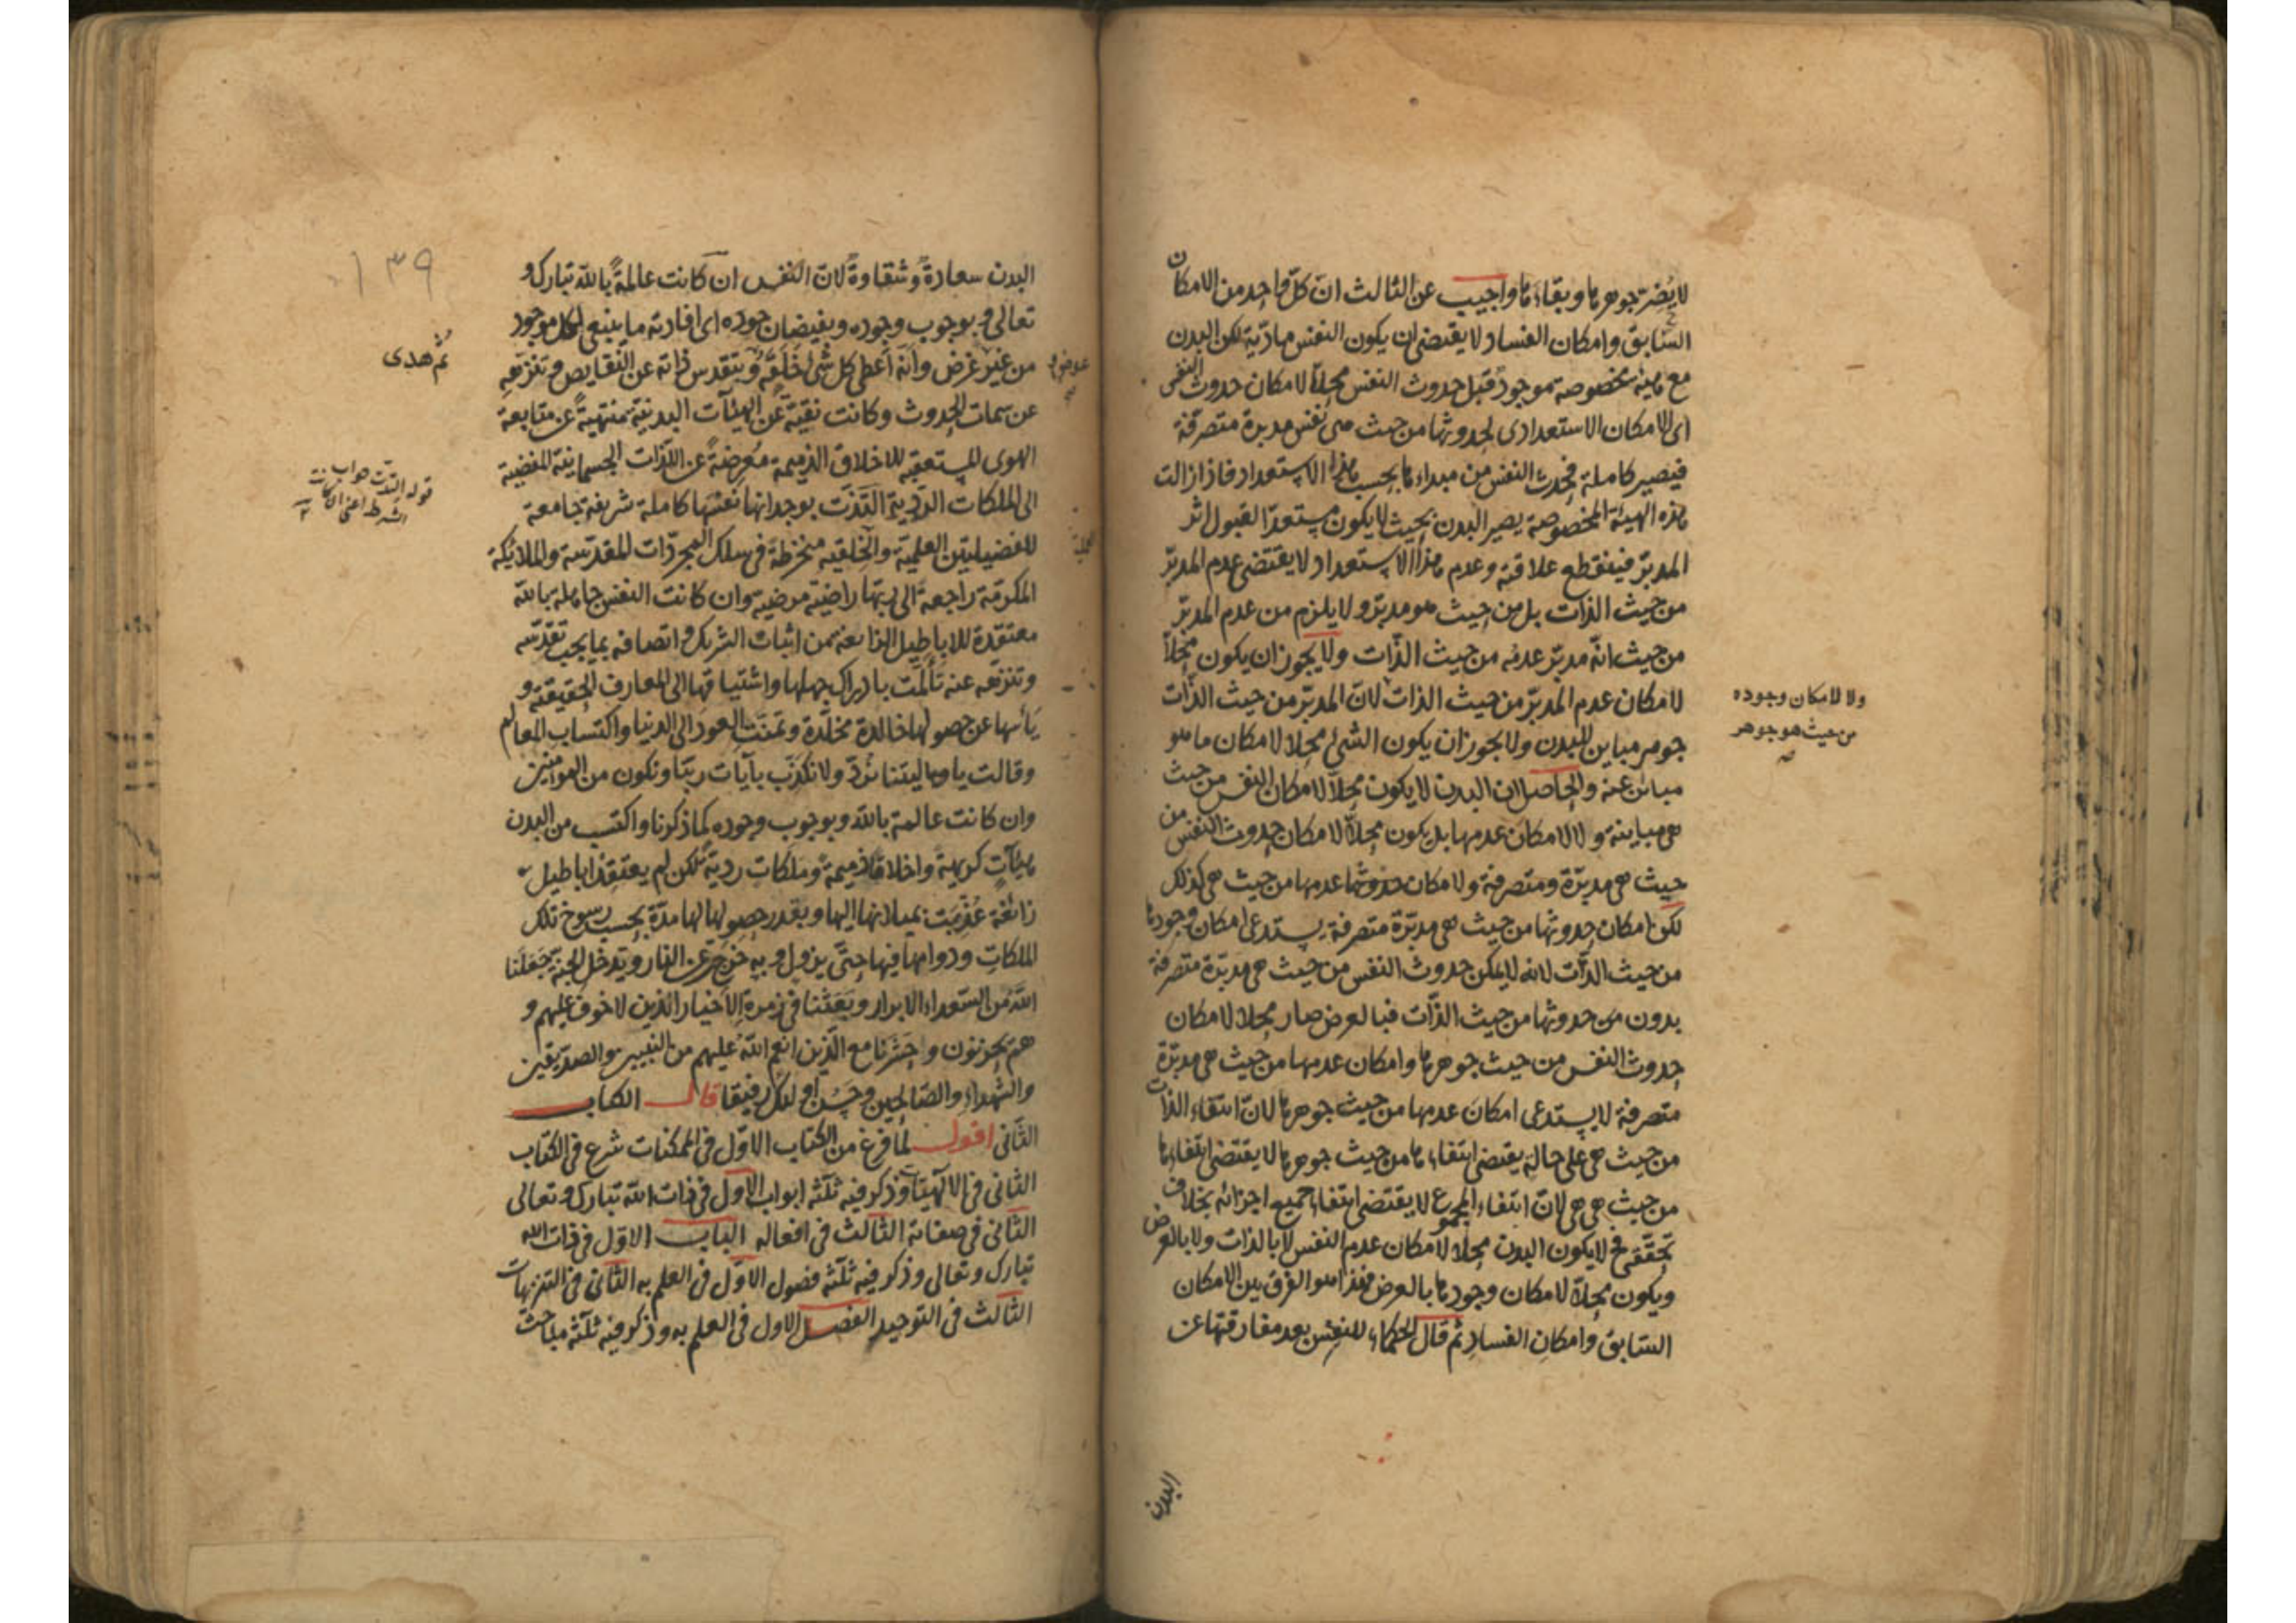 لا يضر جوهرها وبقاءها واجيب عن الثالث ان كل واحد من الامكان
السابق وامكان الفساد لا يقتضى ان يكون النفس مادّية لكن البدن
مع هيئة مخصوصة موجود قبل حدوث النفس محلّا لامكان حدوث النفس
اى الامكان الاستعدادى لحدوثها من حيث هى نفس مدبرة متصرفة
فيصير كاملة فحدث النفس من مبداءها بحسب هذا الاستعداد فاذا زالت
هذه الهيئة المخصوصة يصير البدن بحيث لا يكون مستعدّا لقبول اثر
المدبّر فينقطع علاقته وعدم هذا الاستعداد لا يقتضى عدم المدبّر
من حيث الذات بل من حيث هو مدبّر و لا يلزم من عدم المدبّر
من حيث انّه مدبّر عدمه من حيث الذّات ولا يجوز ان يكون محلّاً
لامكان عدم المدبّر من حيث الذات لانّ المدبّر من حيث الذّات
ولا لامكان وجوده
من حيث هو جوهر
صح
جوهر مباين للبدن ولا يجوز ان يكون الشئ محلا لامكان ما هو
مبائن عنه والحاصل ان البدن لا يكون محلّا لامكان النفس من حيث
هى مباينة و لا لامكان عدمها بل يكون محلّاً لامكان حدوث النفس من
حيث هى مدبّرة ومتصرفة ولامكان عدمها من حيث هى كذلك
لكن امكان حدوثها من حيث هى مدبّرة متصرفة يستدعى امكان وجودها
من حيث الذّات لانه لا يمكن حدوث النفس من حيث هى مدبّرة متصرفة
بدون حدوثها من حيث الذّات فبالعرض صار محلا لامكان
حدوث النفس من حيث جوهرها وامكان عدمها من حيث هى مدبّرة
متصرفة لا يستدعى امكان عدمها من حيث جوهرها لانّ انتفاء الذات
من حيث هى على حالة يقتضى انتفاءها من حيث جوهرها لا يقتضى انتفاءها
من حيث هى هى لانّ انتفاء المجموع لا يقتضى انتفاء جميع اجزائه بخلاف
تحقّقه فح لا يكون البدن محلا لامكان عدم النفس لا بالذات ولا بالعرض
ويكون محلّا لامكان وجودها بالعرض فهذا هو الفرق بين الامكان
السابق وامكان الفساد ثم قال الحكماء للنفس بعد مفارقتها عن
البدن
١٣٩
البدن سعادةً وشقاوةً لانّ النفس ان كانت عالمةً بالله تبارك و
تعالى وبوجوب وجوده وبفيضان جوده اى افادته ما ينبغى لكل موجود
ثم هدى
من غير غرض وانّه أعطى كل شئ خلقه وبتقدس ذاته عن النقايص وتنزهه
عن سمات الحدوث وكانت نقيّة عن الهيئآت البدنية منتهيةً عن متابعة
الهوى المستعقبة للاخلاق الذميمة معرضةً عن اللذّات الجسمانية المفضية
قوله التذت جواب
الشرط اعنى ان كانت
الى الملكات الرديّة التذّت بوجدانها نفسها كاملة شريفة جامعة
للفضيلتين العلمية والخلقيه منخرطة فى سلك المجردّات المقدسة والملائكة
المكرمة راجعة الى ربها راضية مرضية وان كانت النفس جاهلة بالله
معتقدة للاباطيل الزائغة من اثبات الشريك و اتصافه بما يجب تقدّسه
وتنزّهه عنه تألّمت بادراك جهلها واشتياقها الى المعارف الحقيقة و
يأسها عن حصولها خالدة مخلّدة وتمنّت العود الى الدنيا واكتساب المعالم
وقالت يا ليتنا نردّ ولا نكذّب بآيات ربّنا ونكون من المؤمنين
وان كانت عالمة بالله وبوجوب وجوده كما ذكرنا واكتسب من البدن
هيئاتٍ كريهة واخلاقا ذميمة وملكاتٍ رديةً لكن لم يعتقد اباطيل
زائغة عُذّبت بميلانها اليها وبقدر حصولها لها مدّة بحسب رسوخ تلك
الملكات ودوامها فيها حتّى يزول و به خرج عن النار ويدخل الجنّة جعلنا
الله من السّعداء الابرار وبعثنا فى زمرة الاخيار الذين لا خوف عليهم و
هم يحزنون وحشرنا مع الّذين انعم الله عليهم من النبيين والصدّيقين
والشهداء والصّالحين وحسن اولئك رفيقا قال الكتاب
الثانى اقول لمّا فرغ من الكتاب الاوّل فى الممكنات شرع فى الكتاب
الثانى فى الالهيّات وذكر فيه ثلثة ابواب الاول فى ذات الله تبارك وتعالى
الثانى فى صفاته الثالث فى افعاله الباب الاوّل فى ذات الله
تبارك وتعالى وذكر فيه ثلثة فصول الاوّل فى العلم به الثانى فى التنزيهات
الثالث فى التوحيد الفصل الاول فى العلم به وذكر فيه ثلثة مباحث